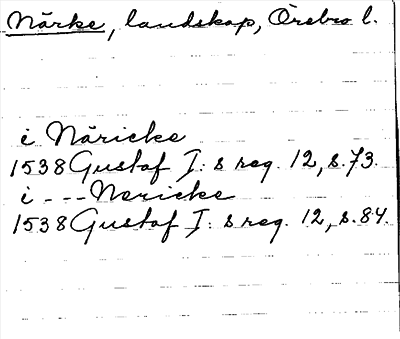 Närke, landskap, Örebro l.
i Näricke
1538 Gustaf I:s reg. 12, s. 73.
i --- Nericke
1538 Gustaf I:s reg. 12, s. 84.